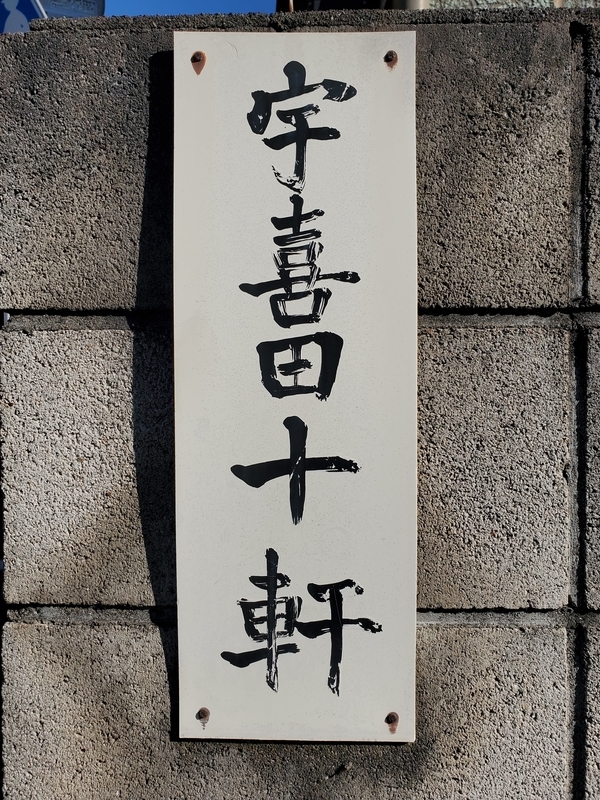 宇喜田十軒